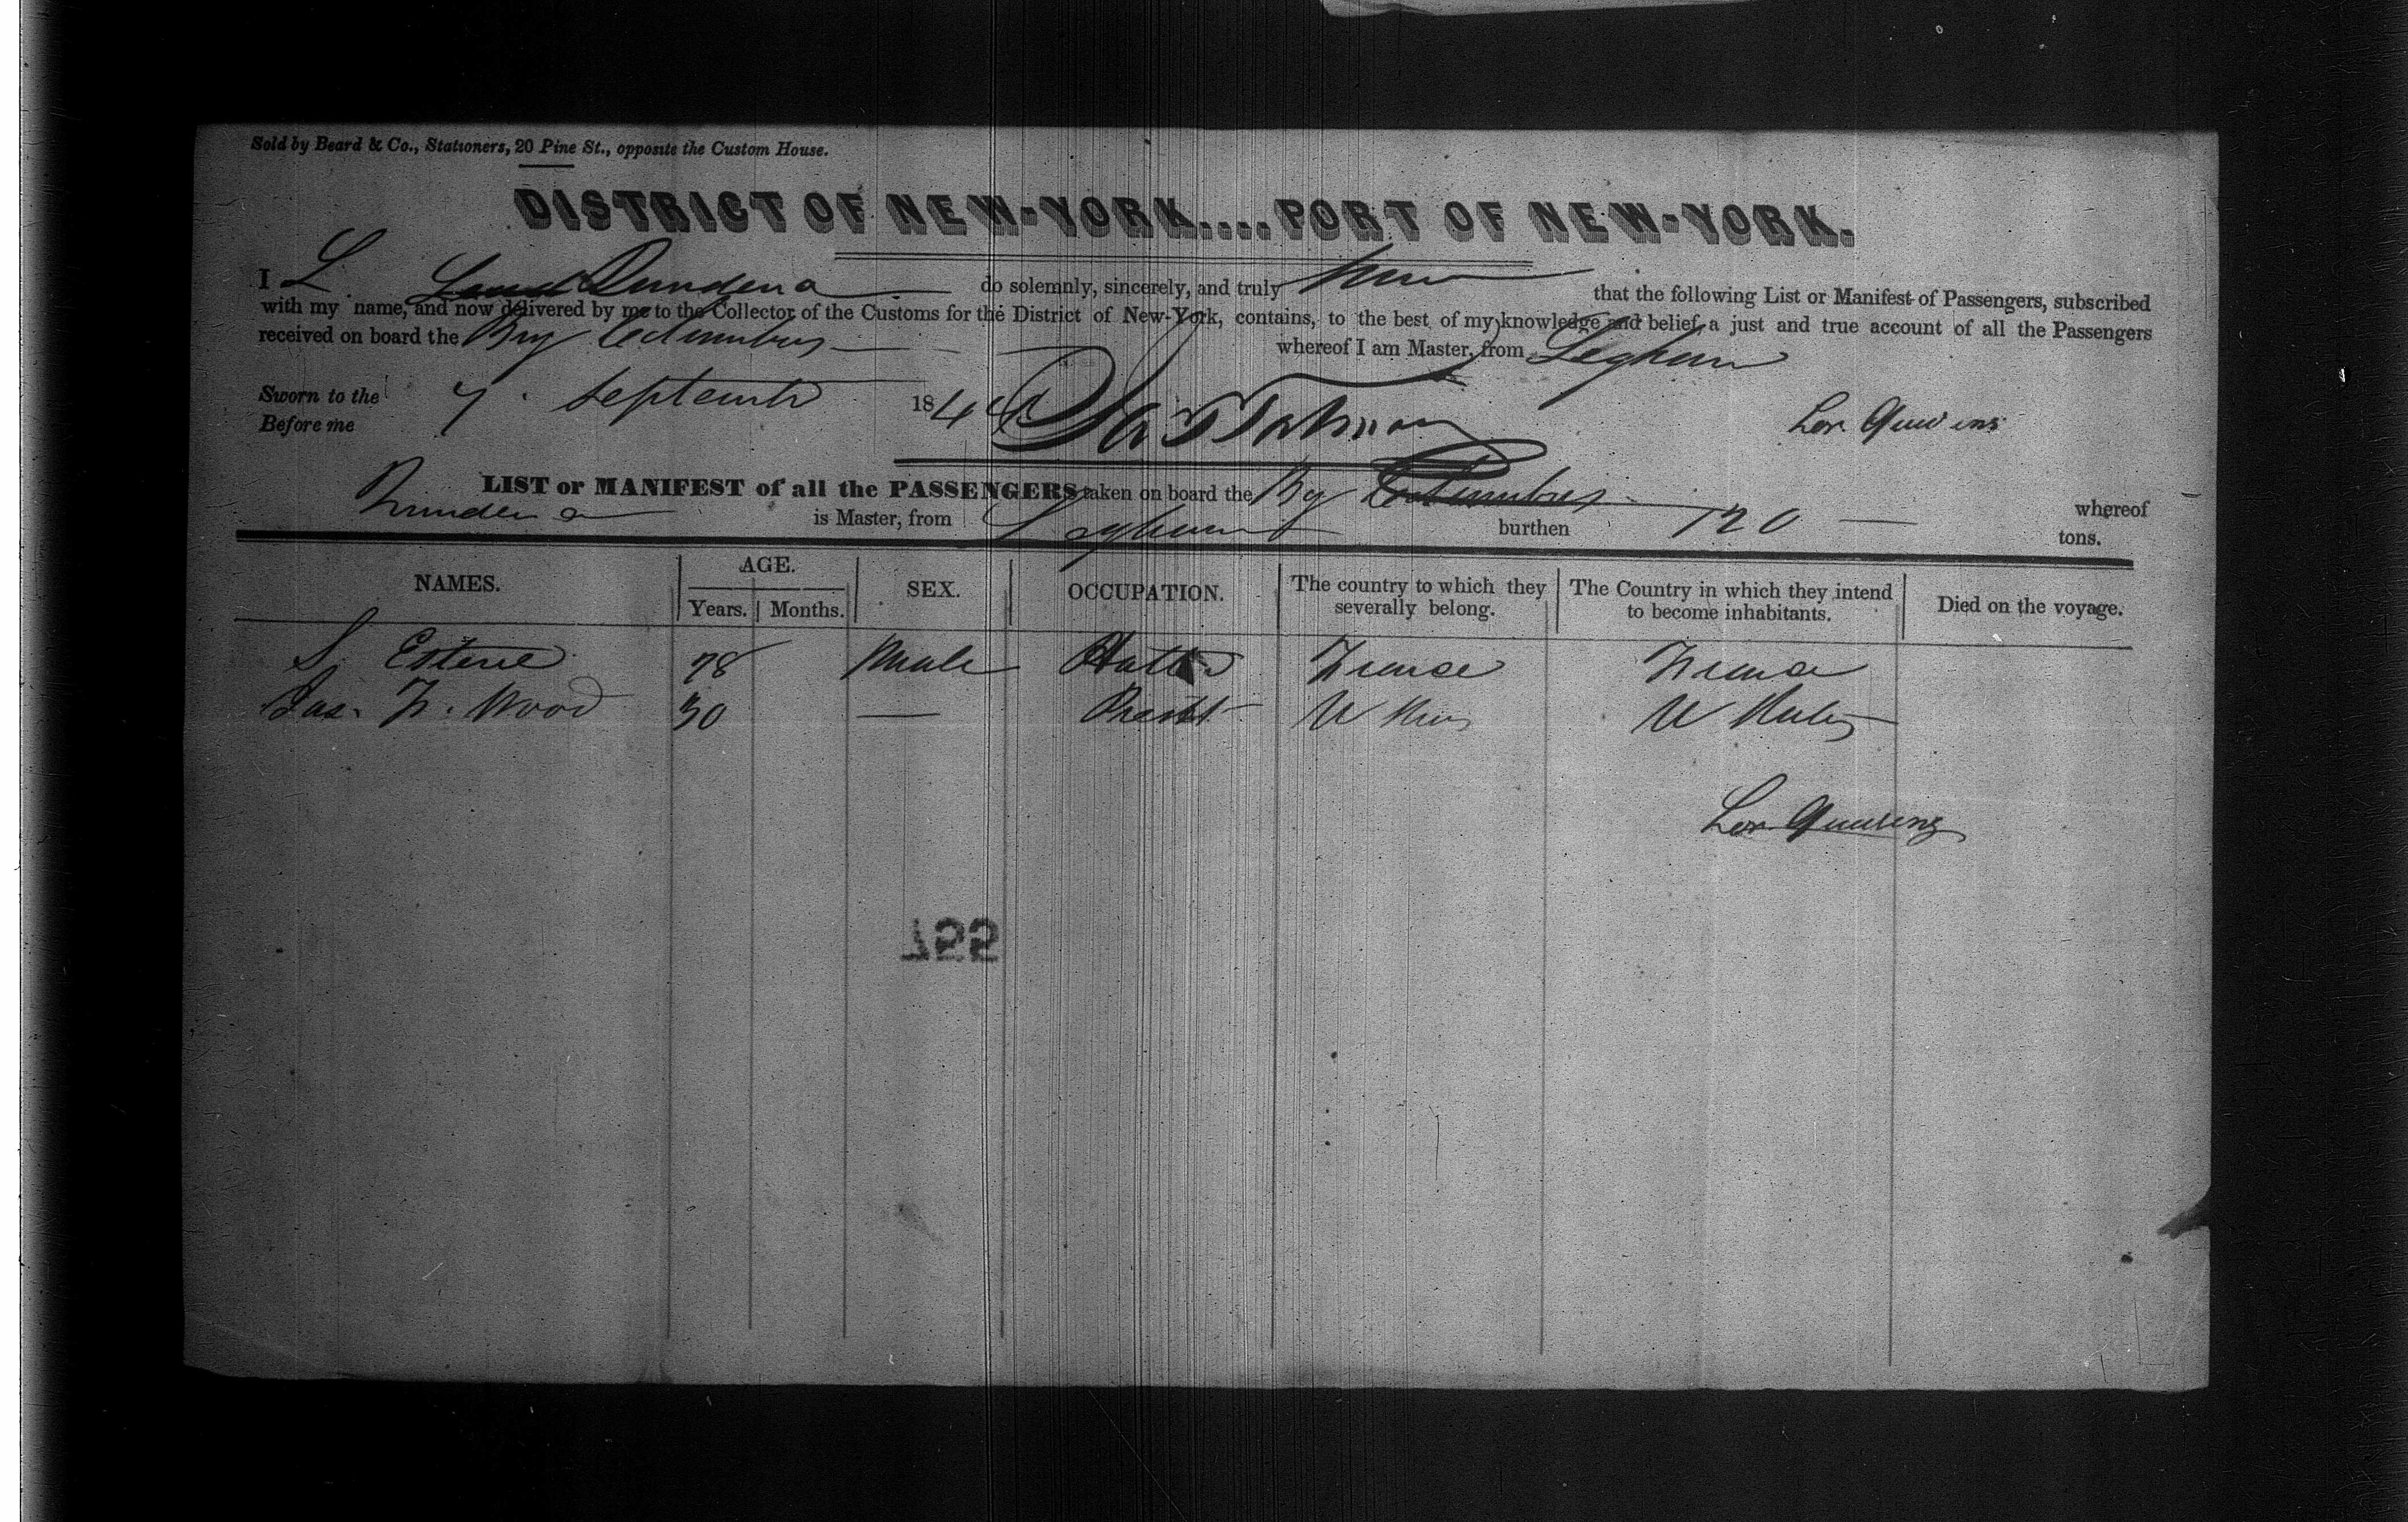 Sold by Beard & Co., Stationers, 20 Pine St., opposite the Custom House.
DISTRICT OF NEW-YORK....PORT OF NEW-YORK.
I L. do solemnly, sincerely, and truly that the following List or Manifest of Passengers, subscribed
with my name, and now delivered by me to the Collector of the Customs for the District of New-York, contains, to the best of my knowledge and belief, a just and true account of all the Passengers
received on board the Brig Columbus whereof I am Master, from Leghorn
Sworn to the 7. September 184
Before me
LIST or MANIFEST of all the PASSENGERS taken on board the Bg Columbus whereof
is Master, from Leghorn burthen 120 tons.
NAMES. AGE. SEX. OCCUPATION. The country to which they severally belong. The Country in which they intend to become inhabitants. Died on the voyage.
Years. Months.
S. Esterie 28 Male Hatter France France
Jas. F. Wood 30 —
755